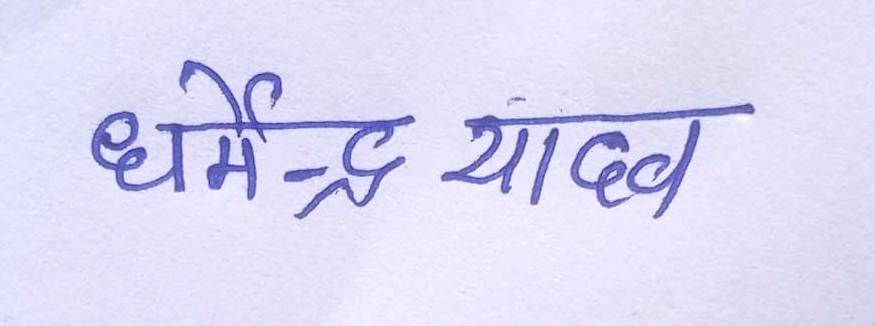 धर्मेन्द्र यादव